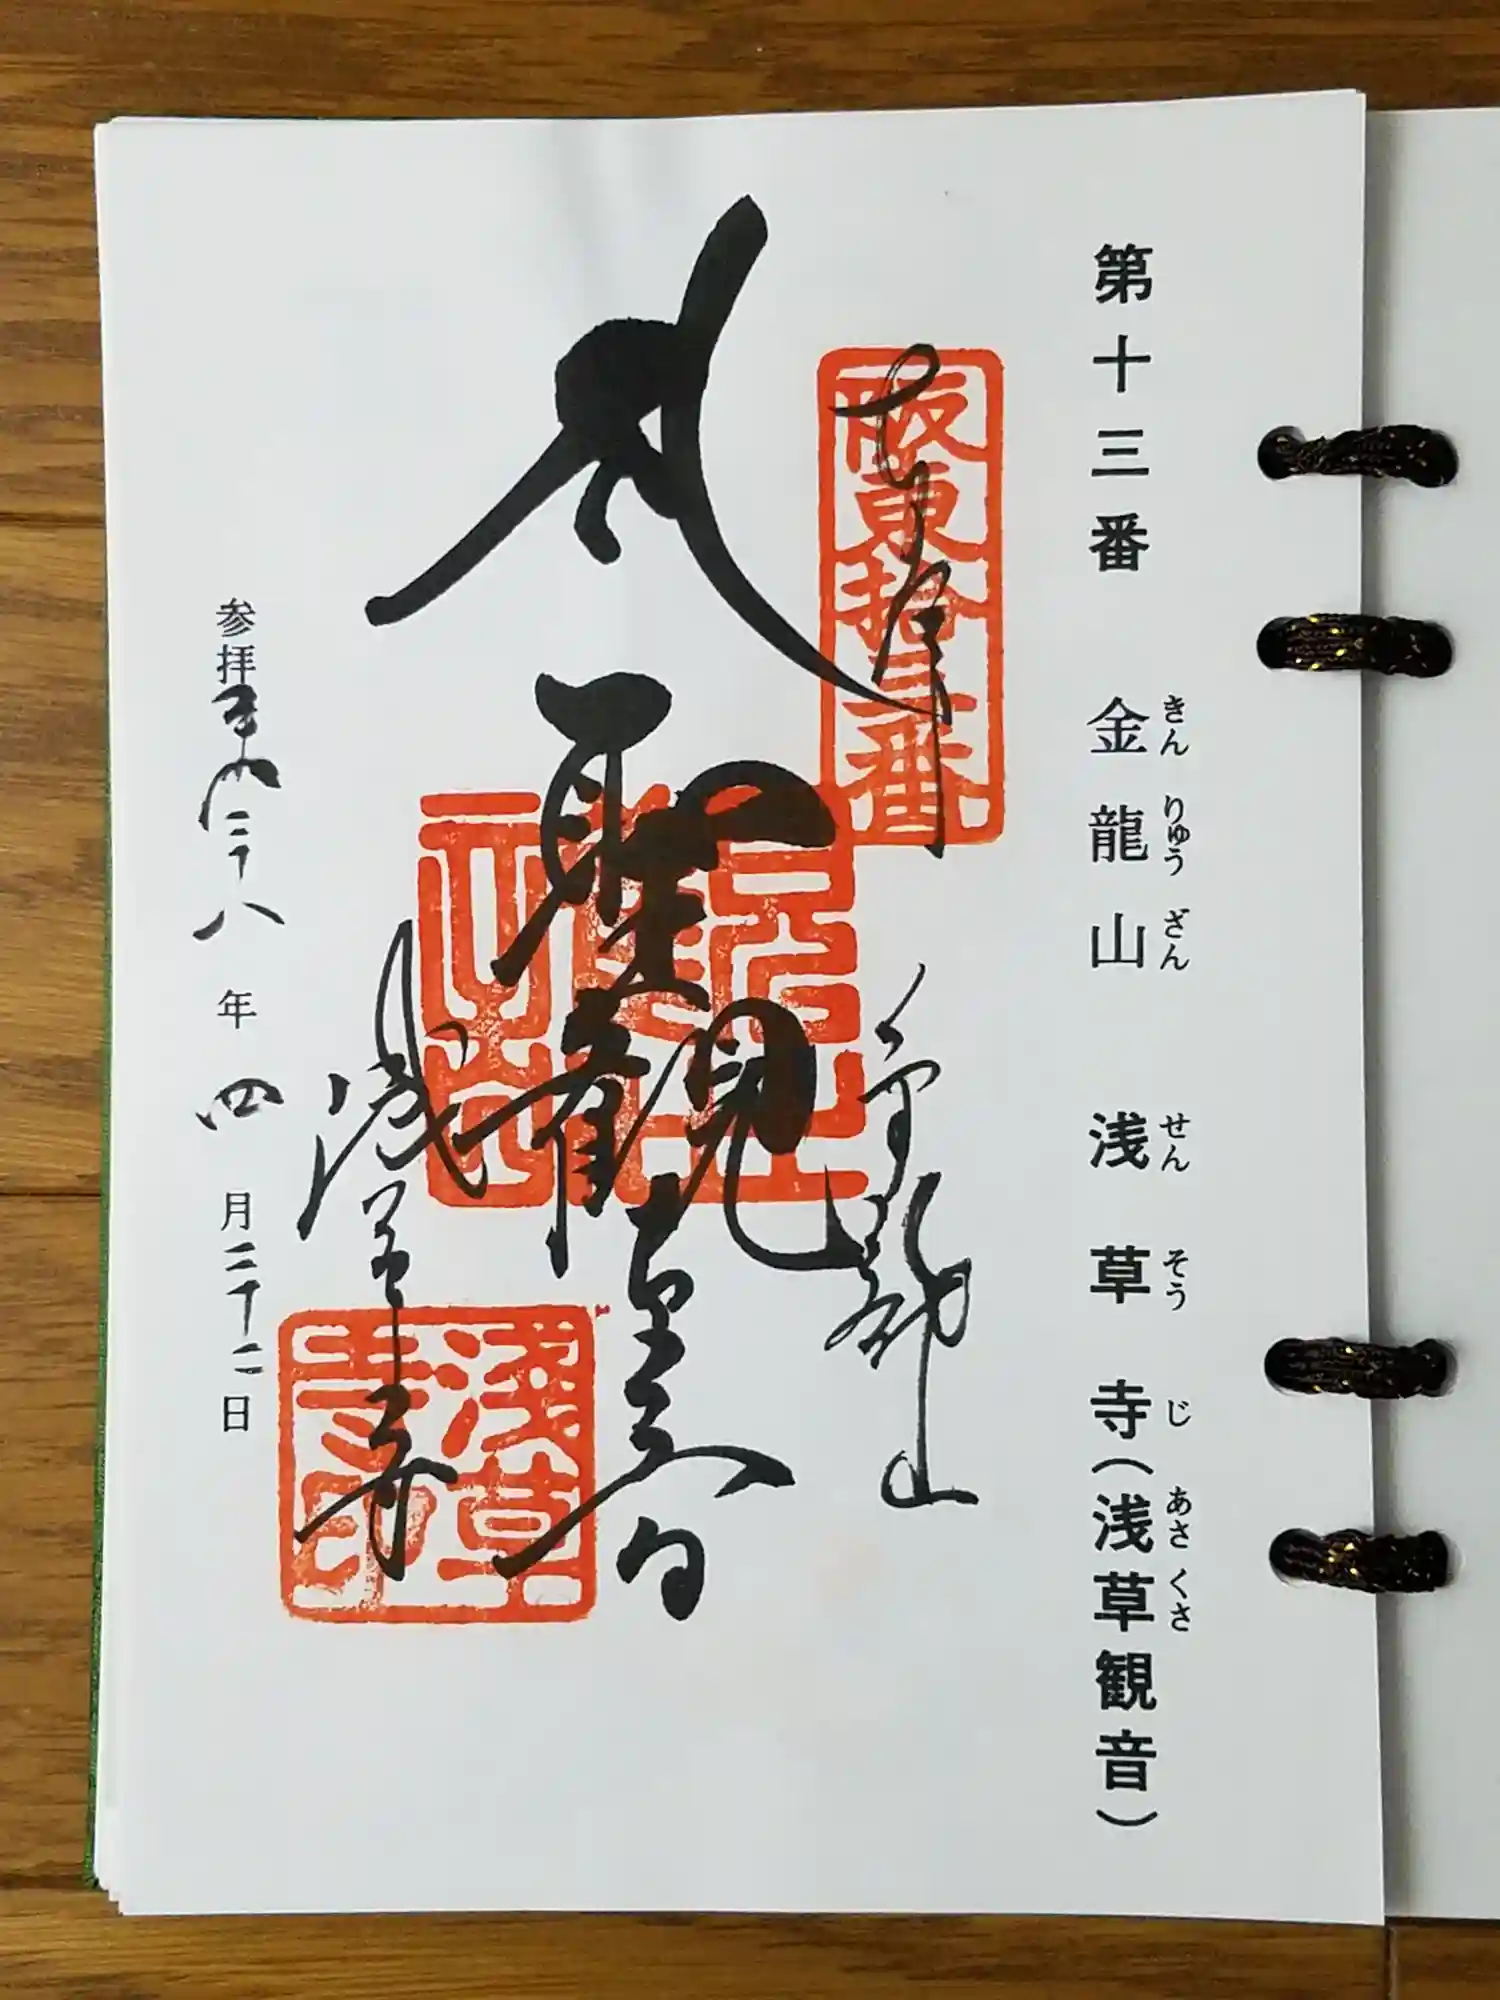 第十三番 金龍山 浅草寺(浅草観音)
きん りゅう ざん せん そう じ あさ くさ
阪東拾三番
奉拝
金龍山
聖観世音
浅草寺
浅草寺印
参拝 平成二十八年 四月二十二日